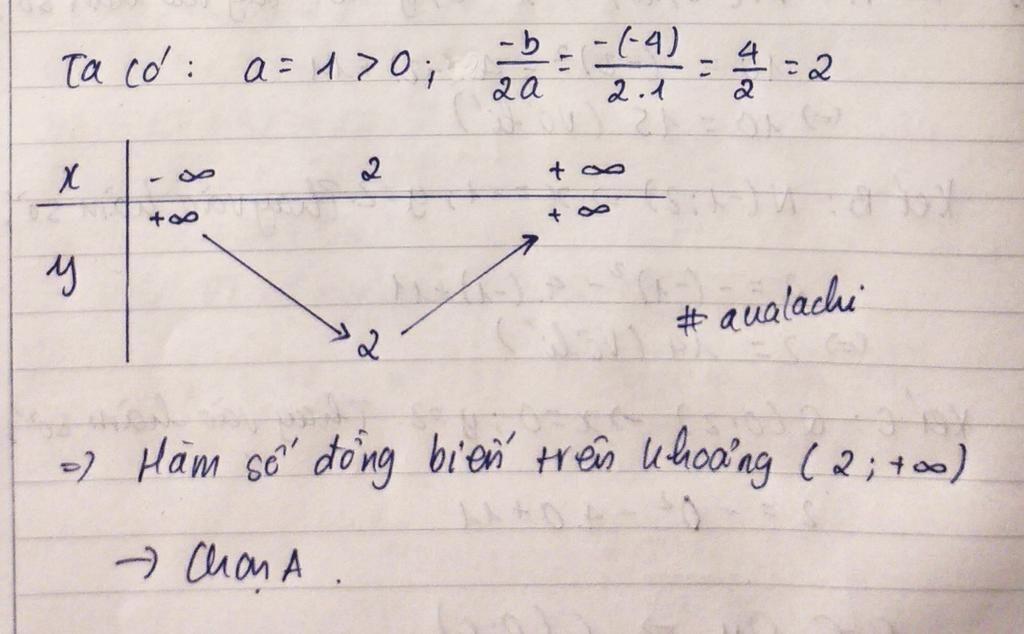 Ta có: a = 1 > 0; -b/2a = -(-4)/2.1 = 4/2 = 2
x -∞ 2 +∞
y +∞ 2 +∞
# aualachi
=> Hàm số đồng biến trên khoảng (2; +∞)
→ Chọn A.